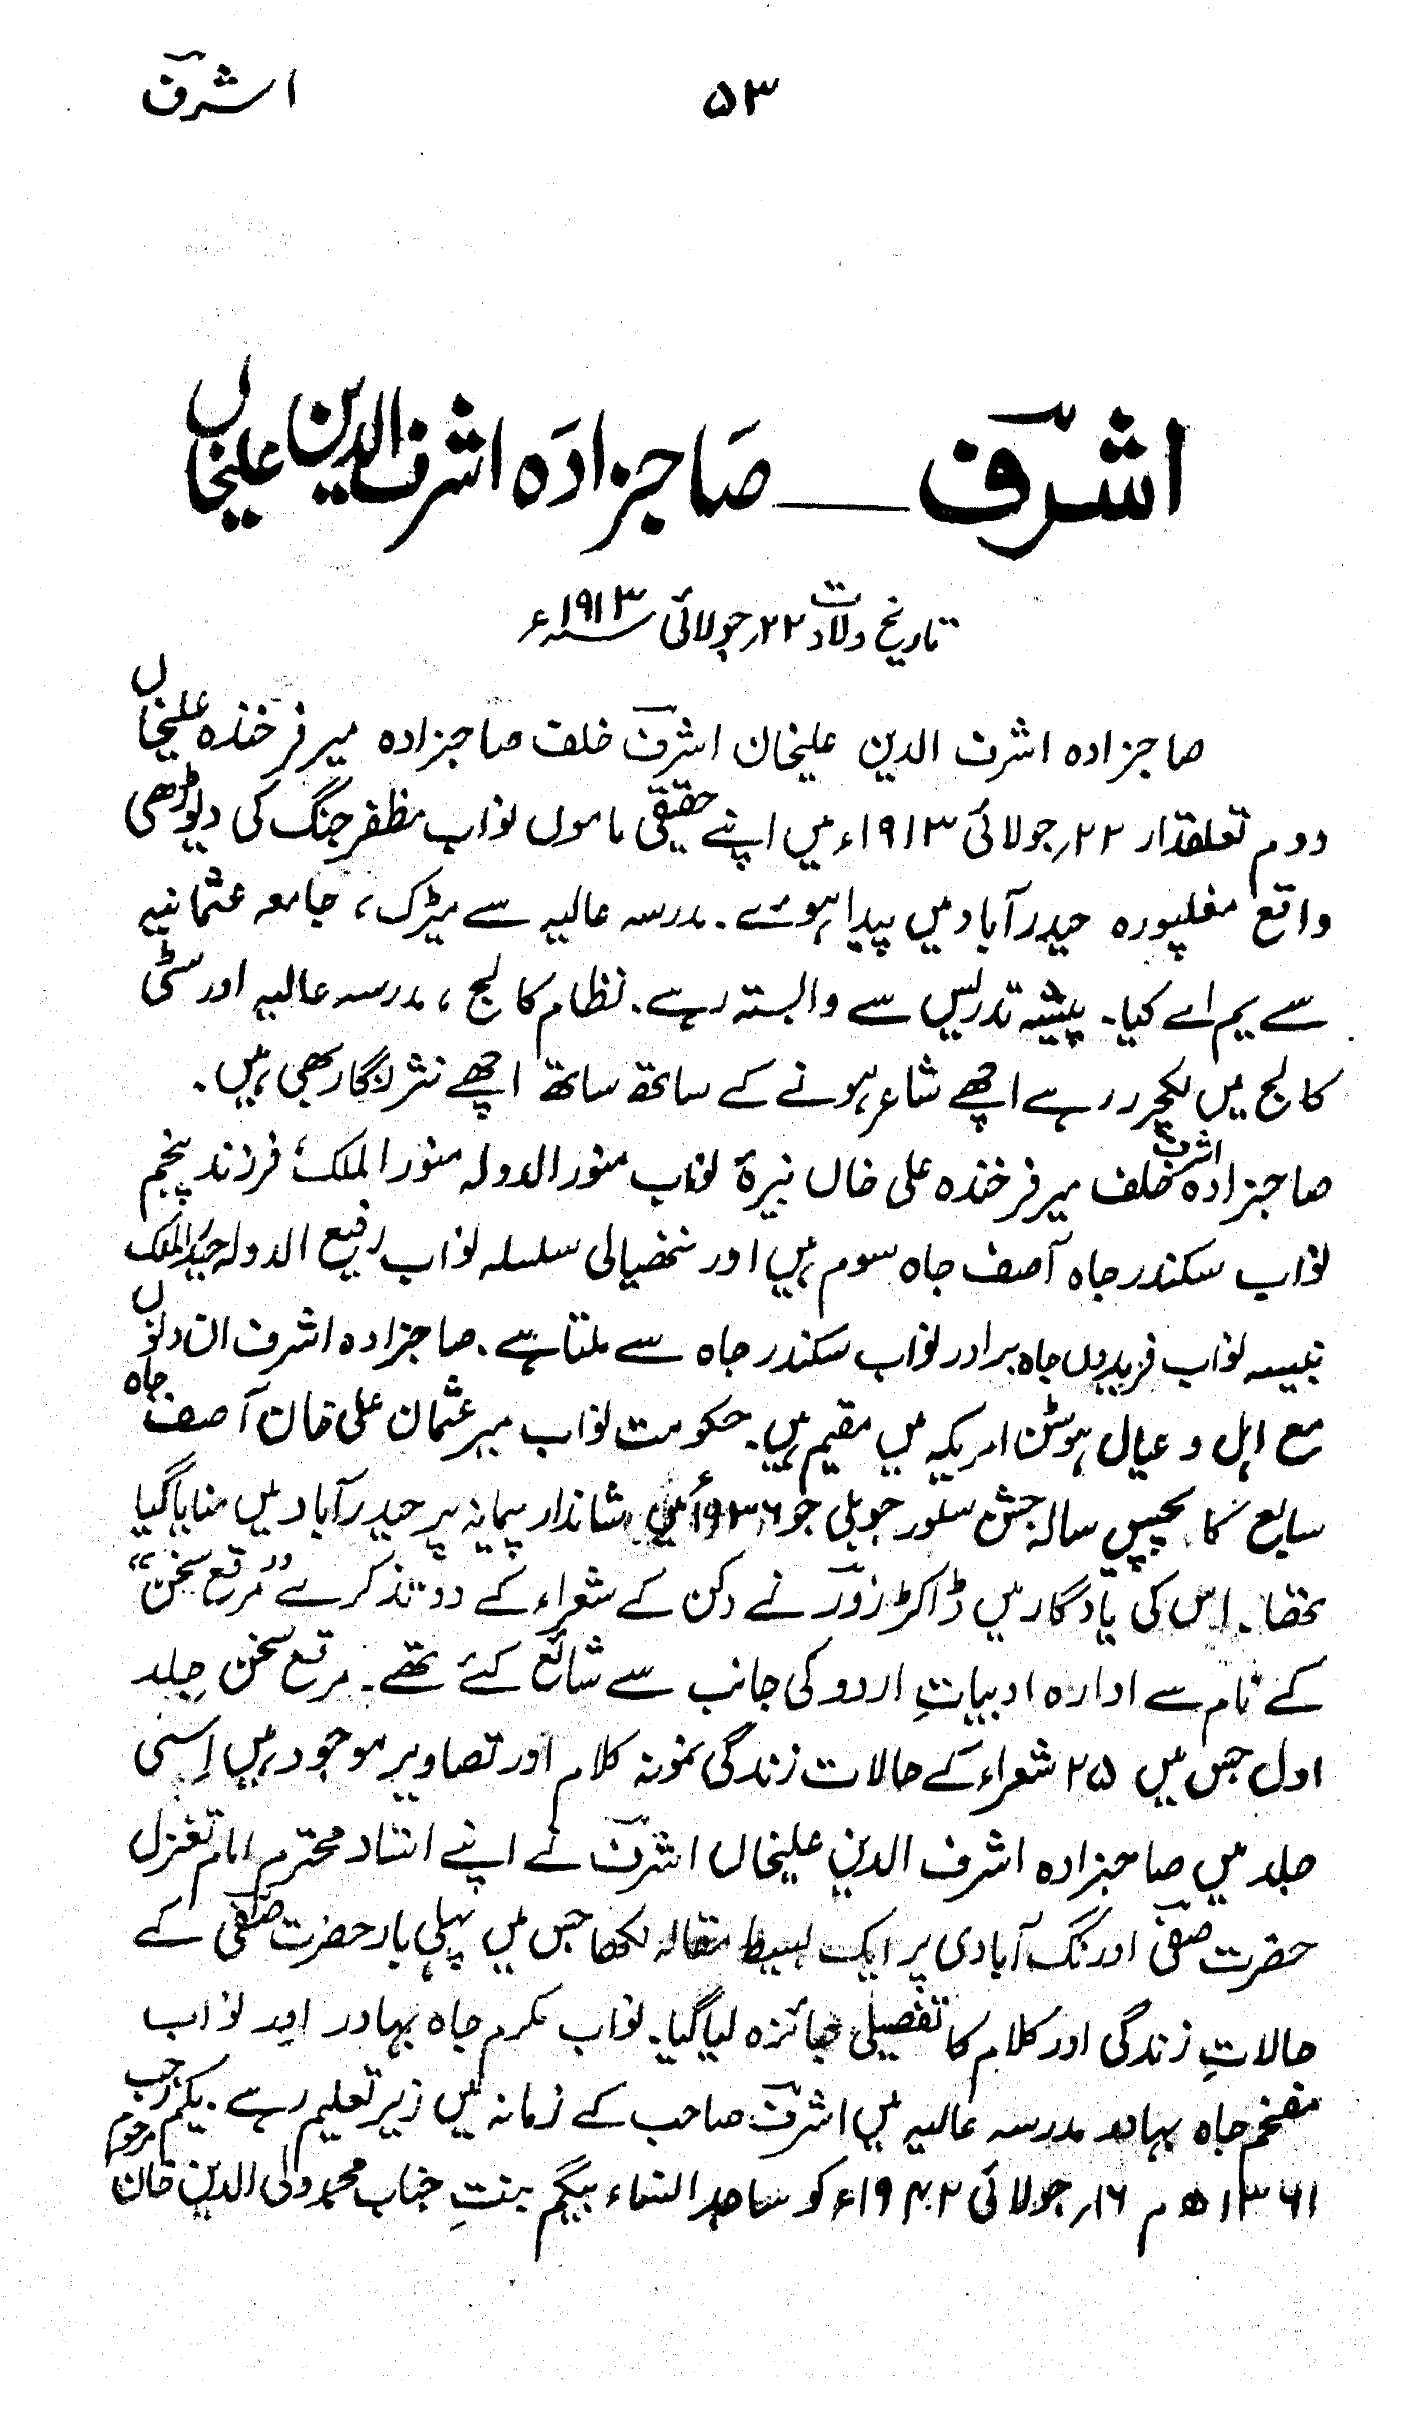 اشرفؔ ۵۳
اشرفؔ ــــ صاحبزادہ اشرف الدین علیخاں
تاریخ ولادت ۲۲؍جولائی ۱۹۱۳ء
صاحبزادہ اشرف الدین علیخان اشرفؔ خلف صاحبزادہ میر فرخندہ علیخاں
دوم تعلقدار ۲۲؍جولائی ۱۹۱۳ء میں اپنے حقیقی ماموں نواب مظفر جنگ کی دیوڑھی
واقع مغلپورہ حیدرآباد میں پیدا ہوئے۔ مدرسہ عالیہ سے میٹرک، جامعہ عثمانیہ
سے یم اے کیا۔ پیشہ تدریس سے وابستہ رہے۔ نظام کالج، مدرسہ عالیہ اور سٹی
کالج میں لکچرر رہے اچھے شاعر ہونے کے ساتھ ساتھ اچھے نثر نگار بھی ہیں۔
صاحبزادہ اشرفؔ خلف میر فرخندہ علی خاں نبیرۂ نواب منور الدولہ منور الملک، فرزند پنجم
نواب سکندر جاہ آصف جاہ سوم ہیں اور ننھیالی سلسلہ نواب رفیع الدولہ حیدر الملک
نبیسہ نواب فریدوں جاہ برادر نواب سکندر جاہ سے ملتا ہے۔ صاحبزادہ اشرف ان دنوں
مع اہل و عیال ہوسٹن امریکہ میں مقیم ہیں۔ حکومت نواب میر عثمان علی خان آصف جاہ
سابع کا پچیس سالہ جشن سلور جوبلی جو ۱۹۳۶ء میں شاندار پیمانہ پر حیدرآباد میں منایا گیا
تھا۔ اس کی یادگار میں ڈاکٹر زورؔ نے دکن کے شعراء کے دو تذکرے ”مرقع سخن“
کے نام سے ادارہ ادبیاتِ اردو کی جانب سے شائع کئے تھے۔ مرقع سخن جلد
اول جس میں ۲۵ شعراء کے حالات زندگی نمونہ کلام اور تصاویر موجود ہیں اِسی
جلد میں صاحبزادہ اشرف الدین علیخاں اشرفؔ نے اپنے استاد محترم امام تغزل
حضرت صفیؔ اورنگ آبادی پر ایک بسیط مقالہ لکھا جس میں پہلی بار حضرت صفیؔ کے
حالاتِ زندگی اور کلام کا تفصیلی جائزہ لیا گیا۔ نواب مکرم جاہ بہادر اور نواب
مفخم جاہ بہادر مدرسہ عالیہ میں اشرفؔ صاحب کے زمانہ میں زیر تعلیم رہے۔ یکم رجب
۱۳۶۱ھ م ۱۶؍جولائی ۱۹۴۲ء کو ساجد النساء بیگم بنتِ جناب محمد ولی الدین خان مرحوم